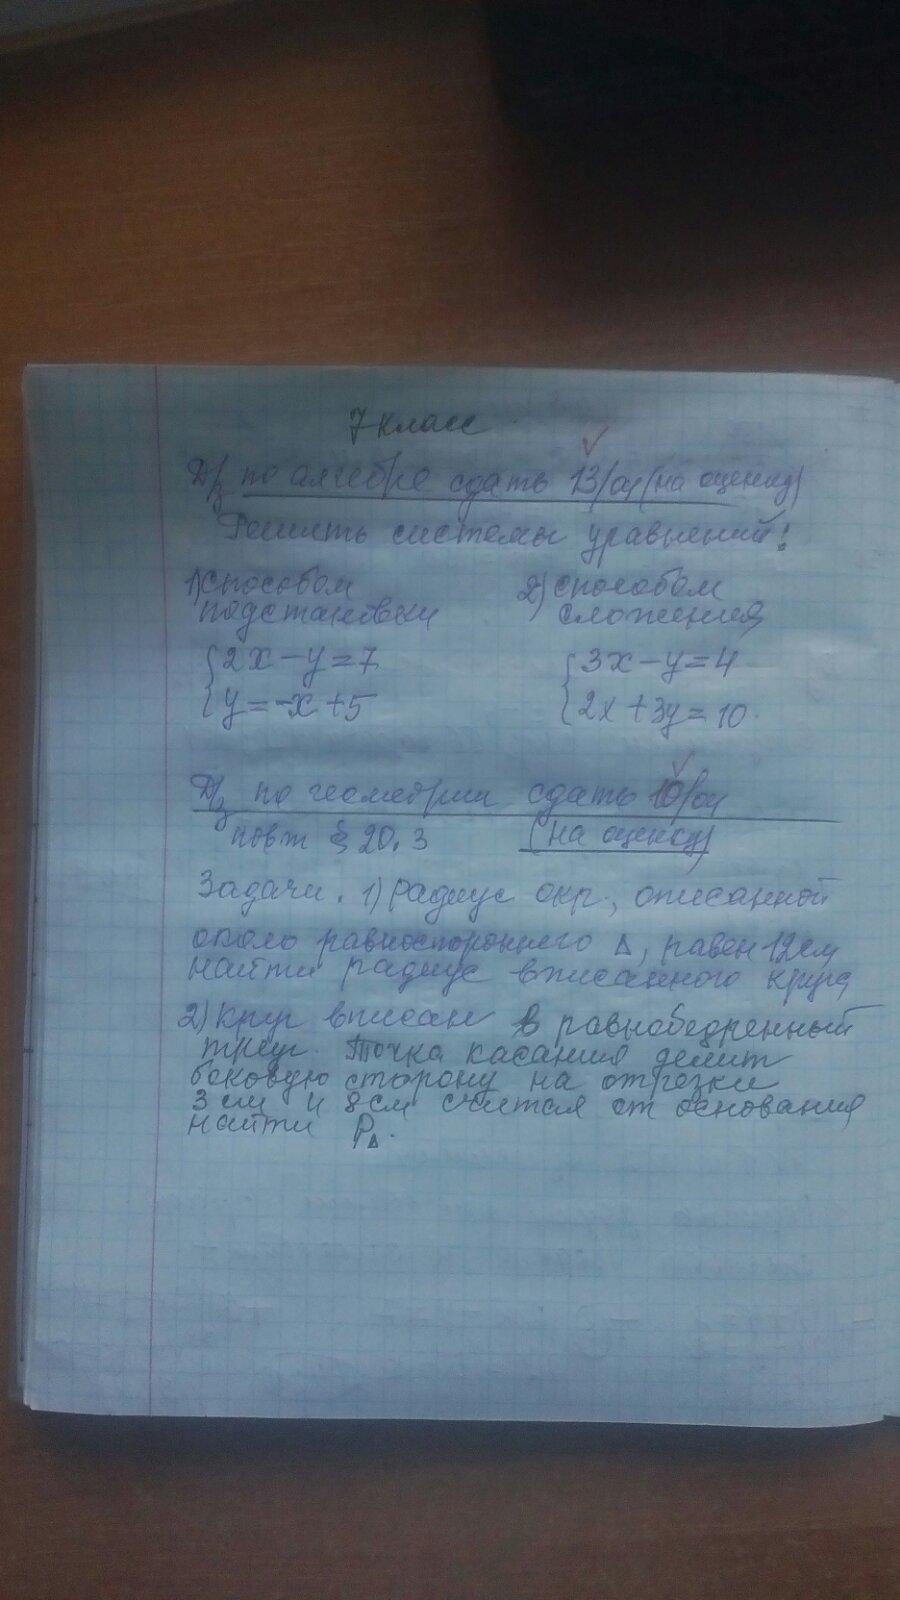 7 класс
Д/з по алгебре сдать 13/04 (на оценку)
Решить системы уравнений:
1) способом 2) способом
подстановки сложения
{2x-y=7 {3x-y=4
{y=-x+5 {2x+3y=10.
Д/з по геометрии сдать 10/04
повт § 20.3 (на оценку)
Задачи. 1) Радиус окр., описанной
около равностороннего Δ, равен 12см
найти радиус вписанного круга
2) Круг вписан в равнобедренный
треуг. Точка касания делит
боковую сторону на отрезки
3 см и 8 см считая от основания
найти PΔ.